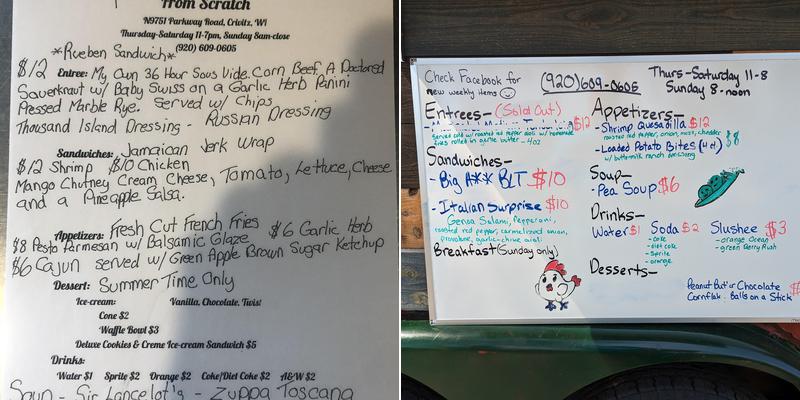 From Scratch
N9751 Parkway Road, Crivitz, WI
Thursday-Saturday 11-7pm, Sunday 8am-close
(920) 609-0605
*Rueben Sandwich*
$12 Entree: My Own 36 Hour Sous Vide Corn Beef. A Doctored
Sauerkraut w/ Baby Swiss on a Garlic Herb Panini
Pressed Marble Rye. Served w/ Chips
Thousand Island Dressing - Russian Dressing
Sandwiches: Jamaican Jerk Wrap
$12 Shrimp $10 Chicken
Mango Chutney Cream Cheese, Tomato, Lettuce, Cheese
and a Pineapple Salsa.
Appetizers: Fresh Cut French Fries $6 Garlic Herb
$8 Pesto Parmesan w/ Balsamic Glaze
$6 Cajun served w/ Green Apple Brown Sugar Ketchup
Dessert: Summer Time Only
Ice-cream: Vanilla, Chocolate, Twist
Cone $2
Waffle Bowl $3
Deluxe Cookies & Creme Ice-cream Sandwich $5
Drinks:
Water $1 Sprite $2 Orange $2 Coke/Diet Coke $2 A&W $2
Soup - Sir Lancelot's - Zuppa Toscana
Check Facebook for
new weekly items
(920)609-0605
Thurs-Saturday 11-8
Sunday 8-noon
Entrees- (Sold Out)
$12
served cold w/ roasted red pepper aioli w/ homemade
fries rolled in garlic butter - 4oz
Sandwiches-
- Big A** BLT $10
- Italian Surprise $10
Genoa Salami, Pepperoni,
roasted red pepper, carmelized onion,
provolone, garlic-chive aioli
Breakfast (Sunday only)
Appetizers-
- Shrimp Quesadilla $12
roasted red pepper, onion, mozz, cheddar
- Loaded Potato Bites (4 ct) $8
w/ buttermilk ranch dressing
Soup-
- Pea Soup $6
Drinks-
Water $1 Soda $2 Slushee $3
- coke
- diet coke
- sprite
- orange
- orange Ocean
- green Berry Rush
Desserts-
Peanut Butter Chocolate
Cornflake Balls on a Stick $